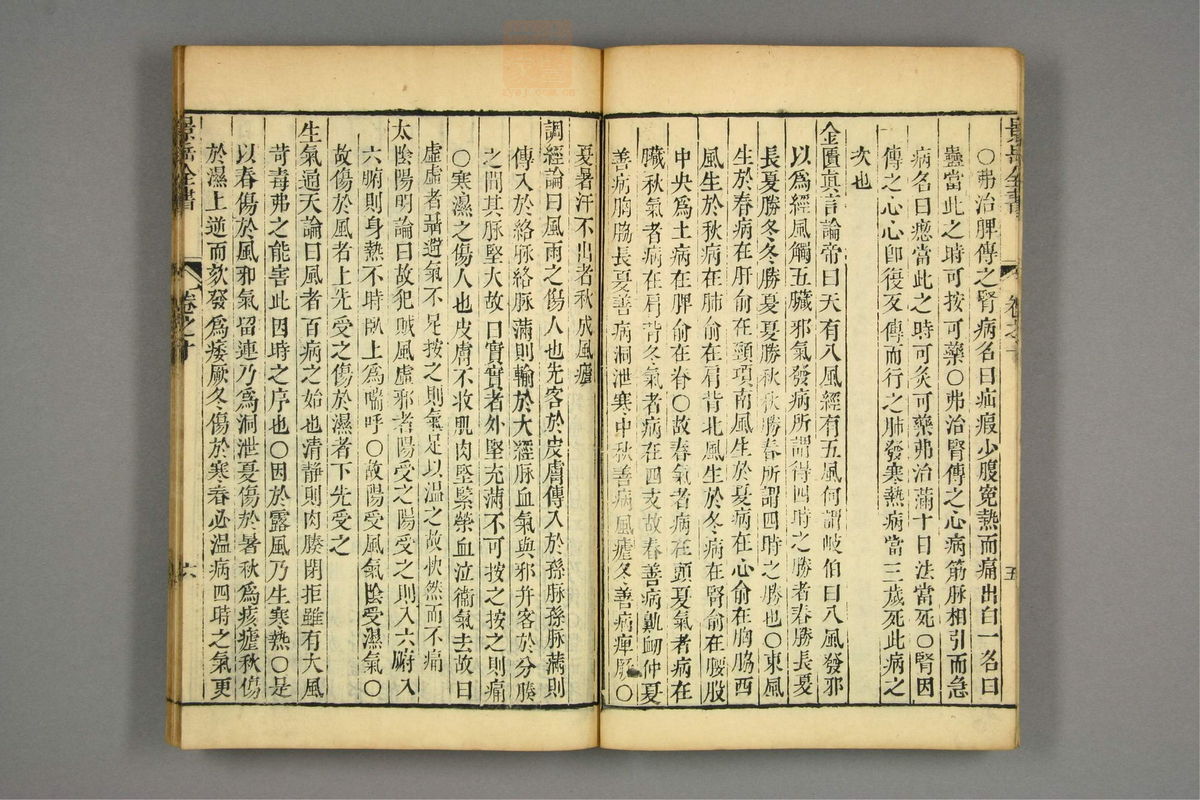 景岳全書 卷之十 五
○弗治脾傳之腎病名曰疝瘕少腹冤熱而痛出白一名曰
蠱當此之時可按可藥○弗治腎傳之心病筋脉相引而急
病名曰瘛當此之時可灸可藥弗治滿十日法當死○腎因
傳之心心卽復反傳而行之肺發寒熱病當三歲死此病之
次也
金匱真言論帝曰天有八風經有五風何謂岐伯曰八風發邪
以爲經風觸五臟邪氣發病所謂得四時之勝者春勝長夏
長夏勝冬冬勝夏夏勝秋秋勝春所謂四時之勝也○東風
生於春病在肝俞在頸項南風生於夏病在心俞在胸脇西
風生於秋病在肺俞在肩背北風生於冬病在腎俞在腰股
中央爲土病在脾俞在脊○故春氣者病在頭夏氣者病在
臟秋氣者病在肩背冬氣者病在四支故春善病鼽衂仲夏
善病胸脇長夏善病洞泄寒中秋善病風瘧冬善病痺厥○
夏暑汗不出者秋成風瘧
調經論曰風雨之傷人也先客於皮膚傳入於孫脉孫脉滿則
傳入於絡脉絡脉滿則輸於大經脉血氣與邪并客於分腠
之間其脉堅大故曰實實者外堅充滿不可按之按之則痛
○寒濕之傷人也皮膚不收肌肉堅緊榮血泣衞氣去故曰
虛虛者聶避氣不足按之則氣足以温之故快然而不痛
太陰陽明論曰故犯賊風虛邪者陽受之陽受之則入六腑入
六腑則身熱不時臥上爲喘呼○故陽受風氣陰受濕氣○
故傷於風者上先受之傷於濕者下先受之
生氣通天論曰風者百病之始也清靜則肉腠閉拒雖有大風
苛毒弗之能害此因時之序也○因於露風乃生寒熱○是
以春傷於風邪氣留連乃爲洞泄夏傷於暑秋爲痎瘧秋傷
於濕上逆而欬發爲痿厥冬傷於寒春必温病四時之氣更
景岳全書 卷之十 六